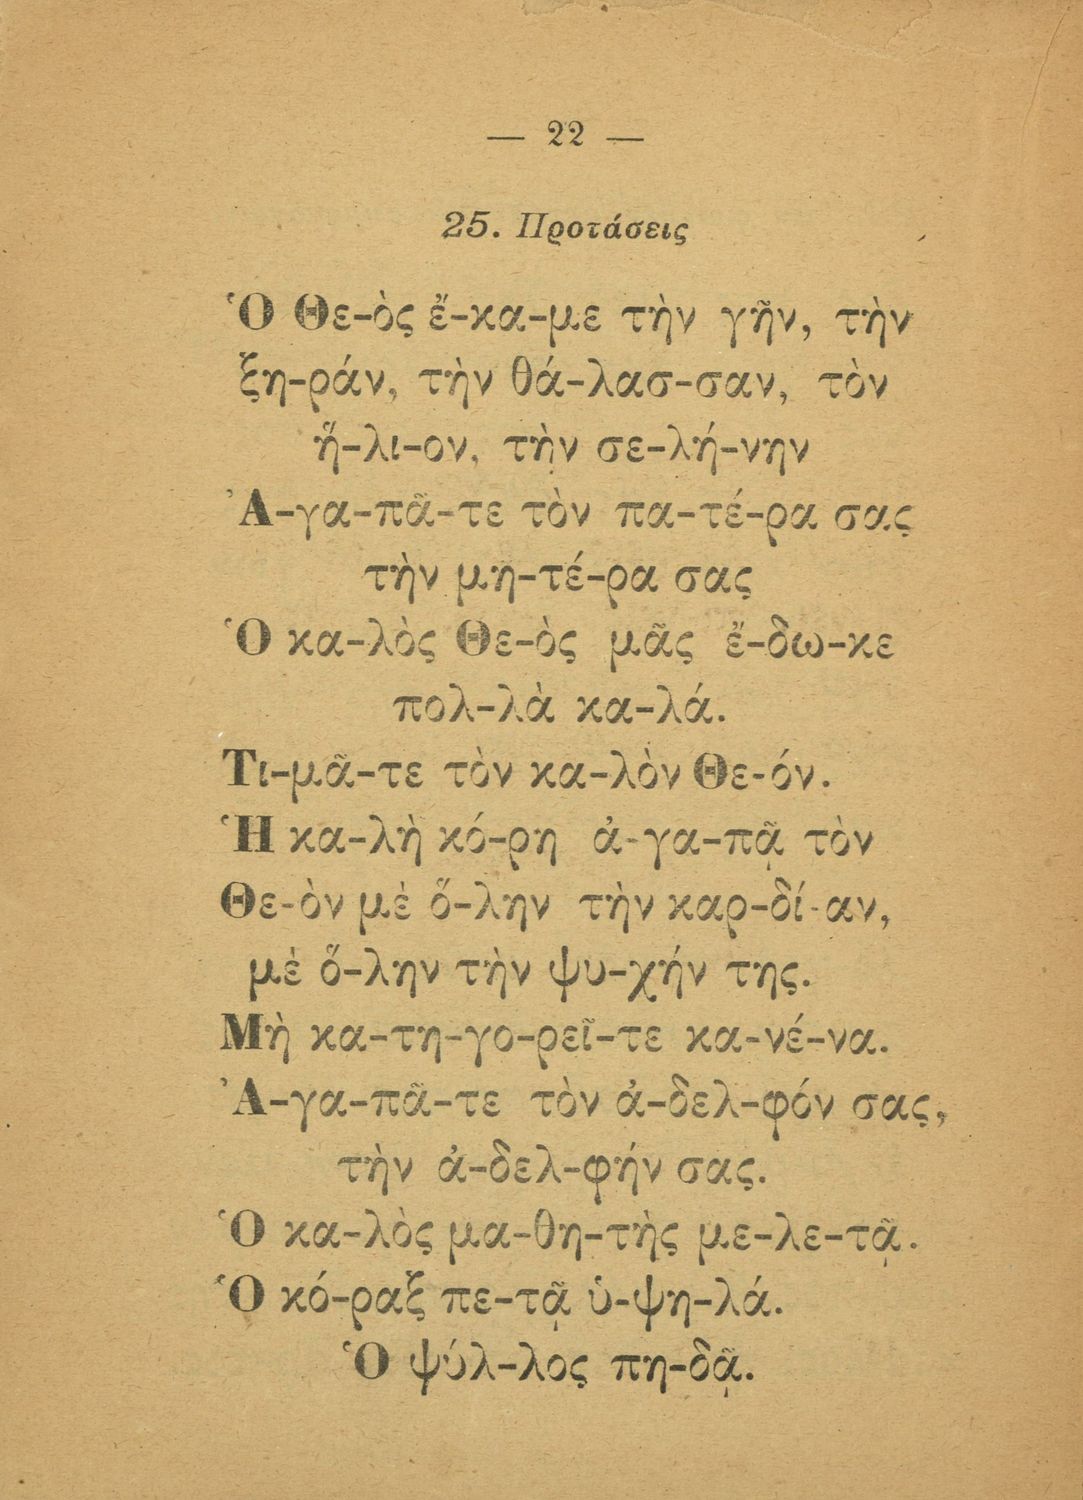 — 22 —
25. Προτάσεις
Ὁ Θε-ὸς ἔ-κα-με τὴν γῆν, τὴν
ξη-ράν, τὴν θά-λασ-σαν, τὸν
ἥ-λι-ον, τὴν σε-λή-νην
Ἀ-γα-πᾶ-τε τὸν πα-τέ-ρα σας
τὴν μη-τέ-ρα σας
Ὁ κα-λὸς Θε-ὸς μᾶς ἔ-δω-κε
πολ-λὰ κα-λά.
Τι-μᾶ-τε τὸν κα-λὸν Θε-όν.
Ἡ κα-λὴ κό-ρη ἀ-γα-πᾷ τὸν
Θε-ὸν μὲ ὅ-λην τὴν καρ-δί-αν,
μὲ ὅ-λην τὴν ψυ-χήν της.
Μὴ κα-τη-γο-ρεῖ-τε κα-νέ-να.
Ἀ-γα-πᾶ-τε τὸν ἀ-δελ-φόν σας,
τὴν ἀ-δελ-φήν σας.
Ὁ κα-λὸς μα-θη-τὴς με-λε-τᾷ.
Ὁ κό-ραξ πε-τᾷ ὑ-ψη-λά.
Ὁ ψύλ-λος πη-δᾷ.